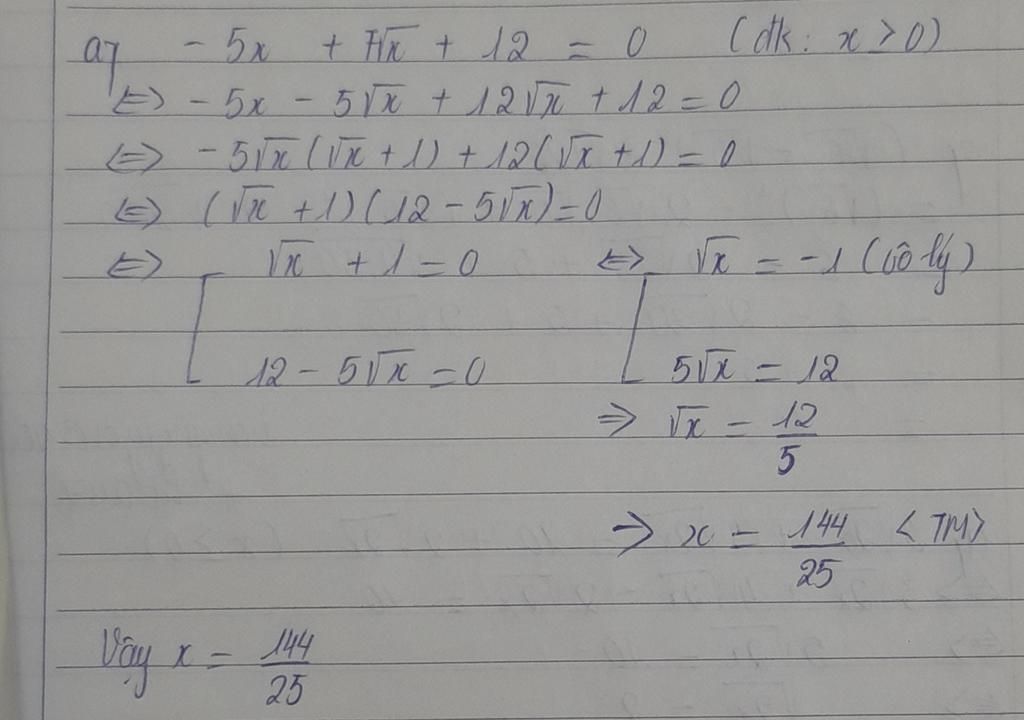 a, - 5x + 7√x + 12 = 0 (đk: x > 0)
⇔ - 5x - 5√x + 12√x + 12 = 0
⇔ - 5√x (√x + 1) + 12 (√x + 1) = 0
⇔ (√x + 1) (12 - 5√x) = 0
⇔ [ √x + 1 = 0 ⇔ [ √x = -1 (vô lý)
12 - 5√x = 0 5√x = 12
⇒ √x = 12/5
⇒ x = 144/25 <TM>
Vậy x = 144/25